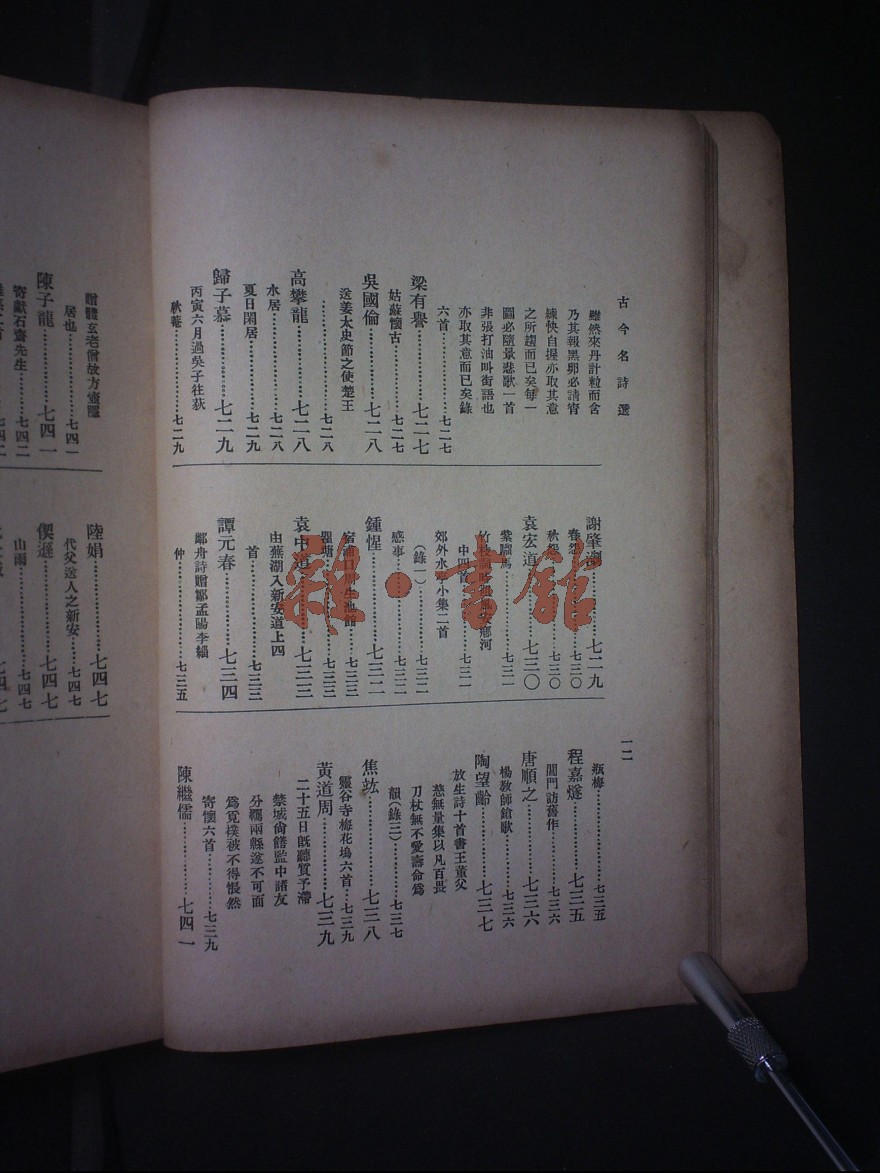 古今名詩選
一二
雖然來丹計粒而含
乃其報黑卵必請宵
練快自握亦取其意
之所趨而已矣每一
圖必隨景悲歌一首
非張打油叫街語也
亦取其意而已矣錄
六首…………七二七
梁有譽…………七二七
姑蘇懷古…………七二七
吳國倫…………七二八
送姜太史節之使楚王
…………七二八
高攀龍…………七二八
水居…………七二八
夏日閑居…………七二九
歸子慕…………七二九
丙寅六月過吳子往荻
秋菴…………七二九
謝肇淛…………七二九
春怨…………七三〇
秋怨…………七三〇
袁宏道…………七三〇
紫騮馬…………七三一
竹枝詞
河
中四首…………七三一
郊外水亭小集二首
(錄一)…………七三二
感事…………七三二
鍾惺…………七三二
宿浦口
瞿塘…………七三三
袁中道…………七三三
由蕪湖入新安道上四
首…………七三三
譚元春…………七三四
鄰舟詩贈鄒孟陽李緇
仲…………七三五
瓶梅…………七三五
程嘉燧…………七三五
閶門訪舊作…………七三六
唐順之…………七三六
楊教師鎗歌…………七三六
陶望齡…………七三七
放生詩十首書王董父
慈無量集以凡百畏
刀杖無不愛壽命爲
韻(錄三)…………七三七
焦竑…………七三八
靈谷寺梅花塢六首…七三九
黃道周…………七三九
二十五日既聽質予滯
禁城尙饍監中諸友
分羈兩縣遂不可面
爲寬樸被不得悵然
寄懷六首…………七三九
陳繼儒…………七四一
贈醴玄老僧故方壺隱
居也…………七四一
陳子龍…………七四一
寄獻石齋先生…………七四二
陸娟…………七四七
代父送人之新安…………七四七
偰遜…………七四七
山雨…………七四七
雜·書館